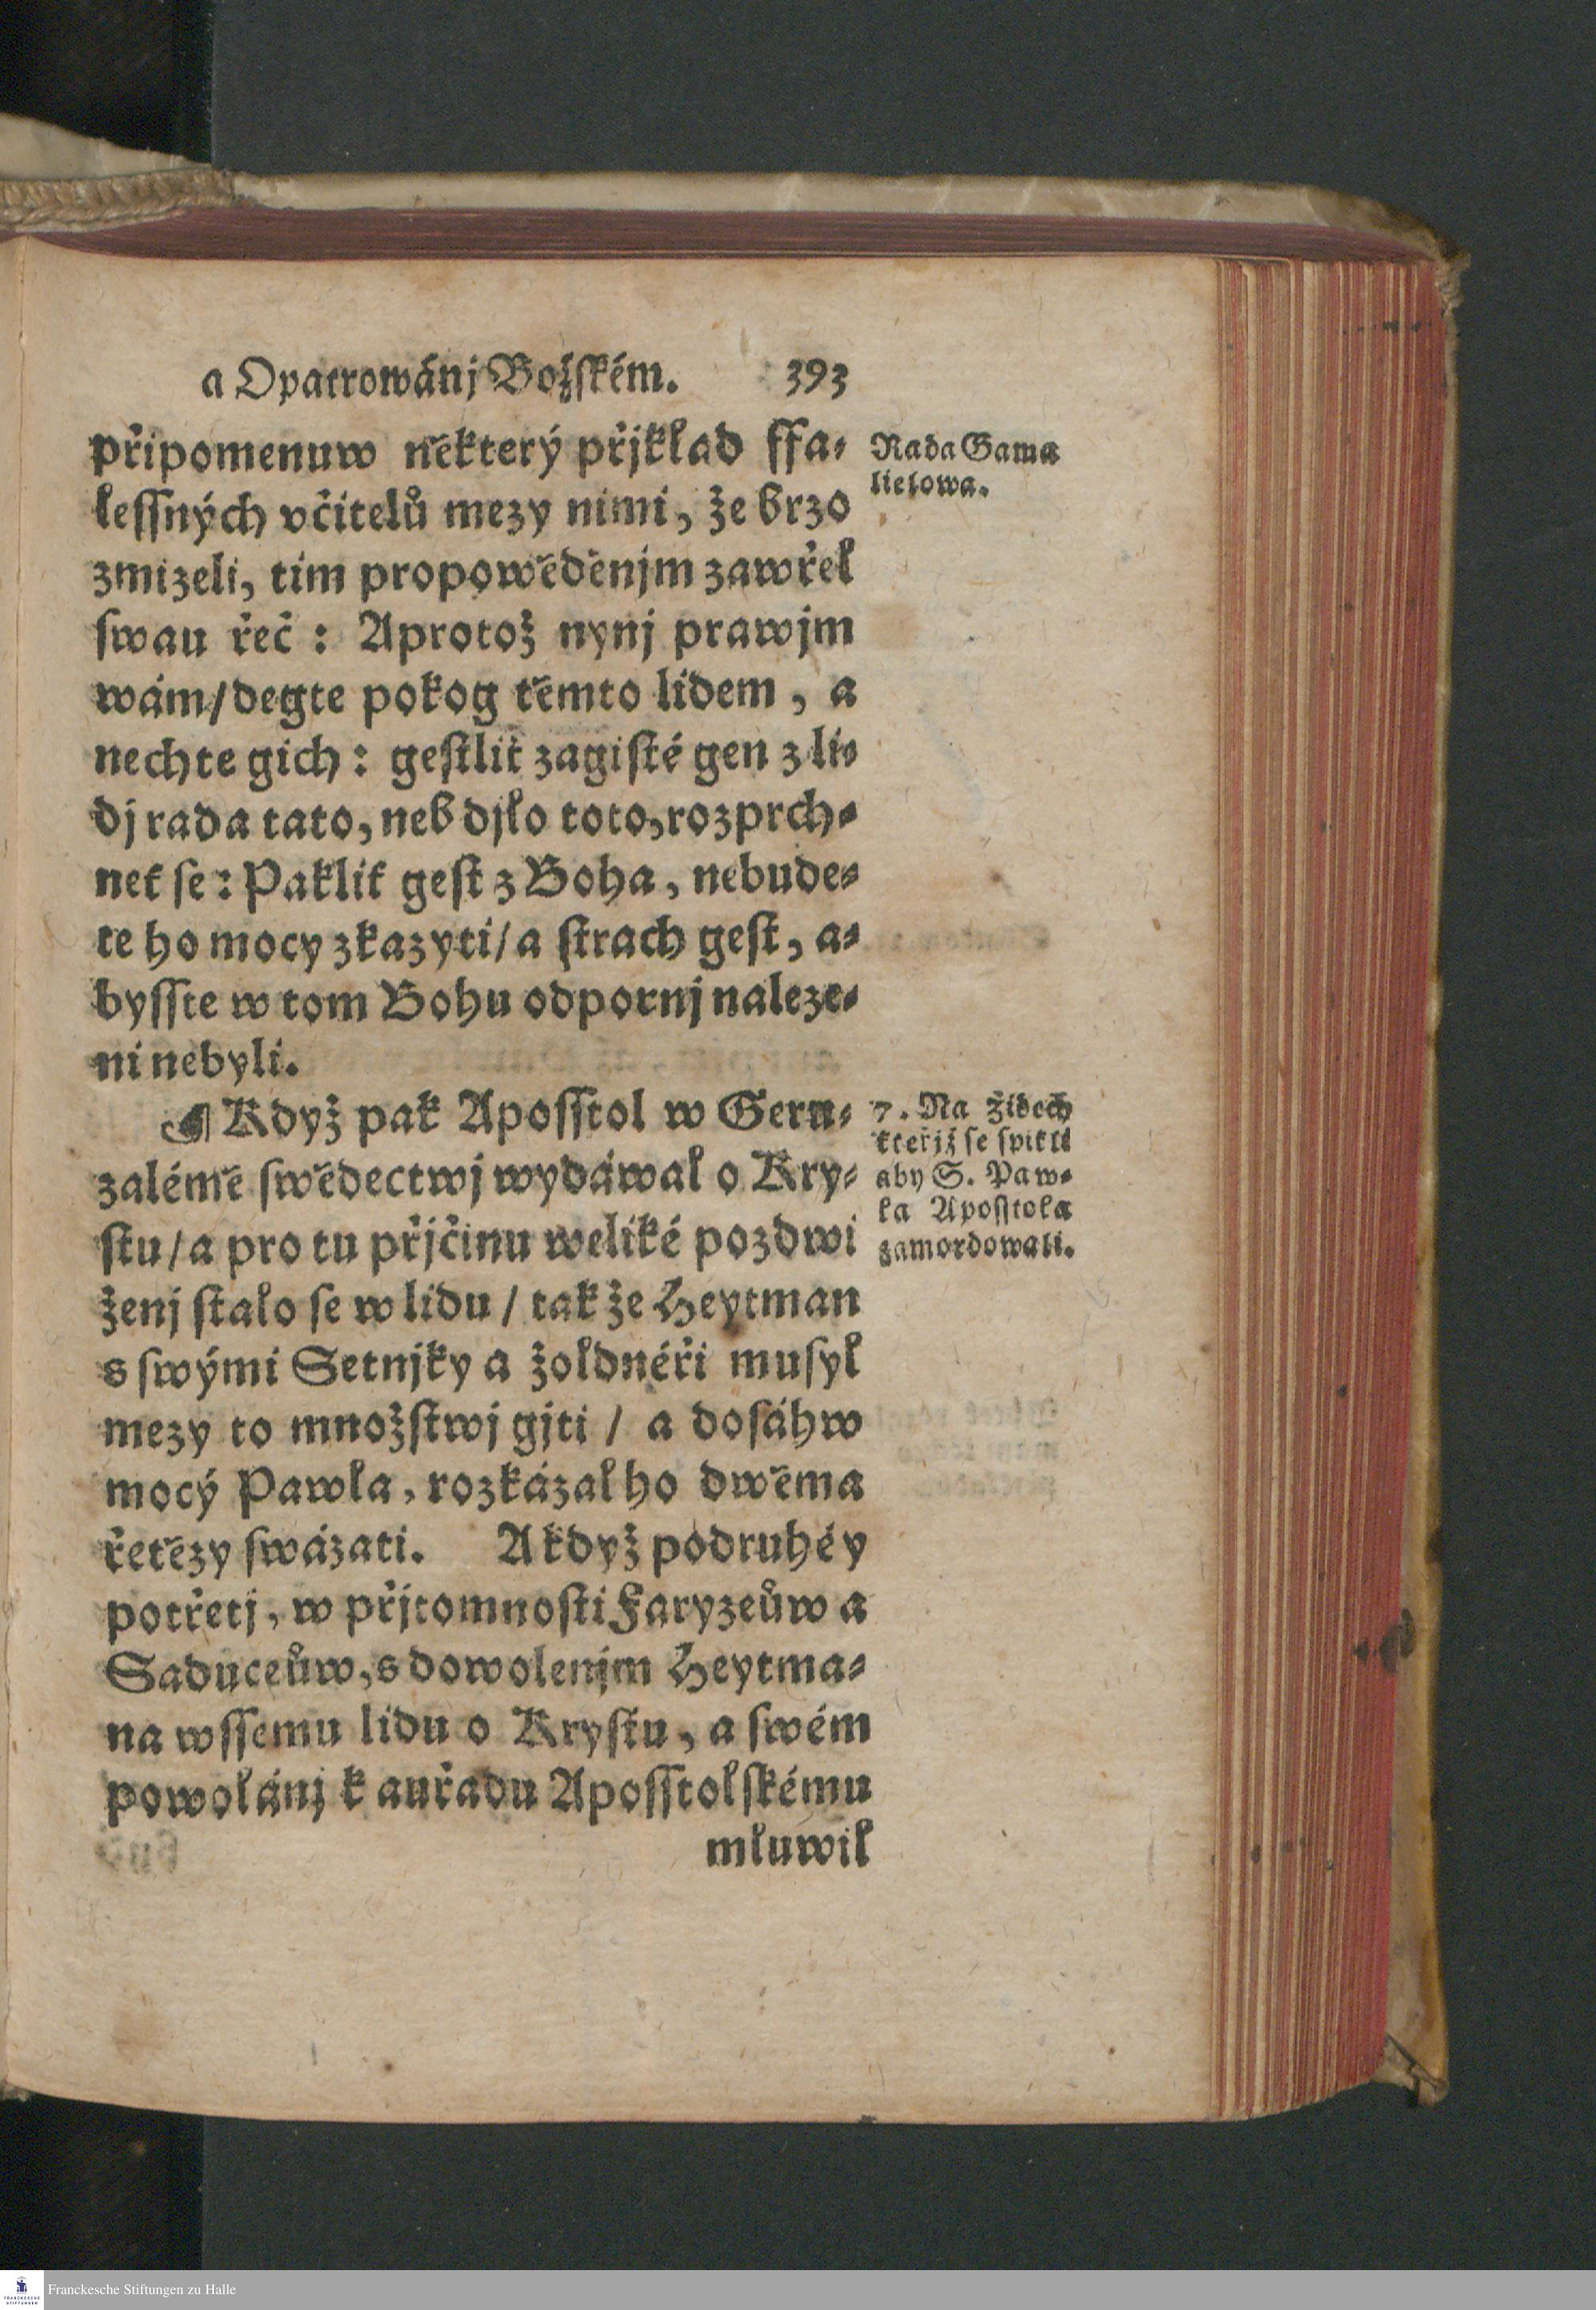 a Opatrowánj Božſkém. 393
připomenuw některý přjklad ſſa⸗
leſſných včitelů mezy nimi, že brzo
zmizeli, tím propowěděnjm zawřel
ſwau řeč : Aprotož nynj prawjm
wám/degte pokog těmto lidem, a
nechte gich : geſtliť zagiſté gen z li⸗
dj rada tato, neb djlo toto, rozprch⸗
neť ſe : Pakliť geſt z Boha, nebude⸗
te ho mocy zkazyti/a ſtrach geſt, a⸗
byſſte w tom Bohu odpornj naleze⸗
ni nebyli.
¶ Když pak Apoſſtol w Geru⸗
zalémě ſwědectwj wydáwal o Kry⸗
ſtu/a pro tu přjčinu weliké pozdwi
ženj ſtalo ſe w lidu / tak že Heytman
s ſwými Setnjky a žoldnéři muſyl
mezy to množſtwj gjti / a doſáhw
mocý Pawla, rozkázal ho dwěma
řetězy ſwázati. A když podruhé y
potřetj, w přjtomnoſti Faryzeůw a
Saduceůw, s dowolenjm Heytma⸗
na wſſemu lidu o Kryſtu, a ſwém
powolánj k auřadu Apoſſtolſkému
mluwil
Rada Gama
lielowa.
7. Na Židech
kteřjž ſe ſpikli
aby S. Paw⸗
la Apoſſtola
zamordowali.
Franckesche Stiftungen zu Halle
FRANCKESCHE
STIFTUNGEN